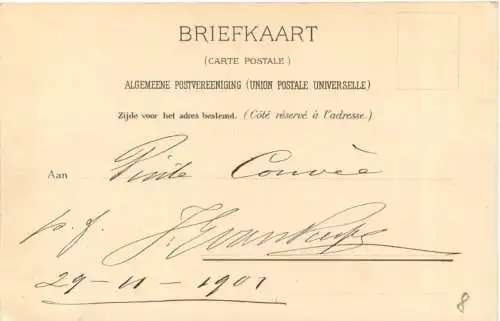 BRIEFKAART
(CARTE POSTALE)
ALGEMEENE POSTVEREENIGING (UNION POSTALE UNIVERSELLE)
Zijde voor het adres bestemd. (Côté réservé à l'adresse.)
Aan
p. f.
29-11-1901
8